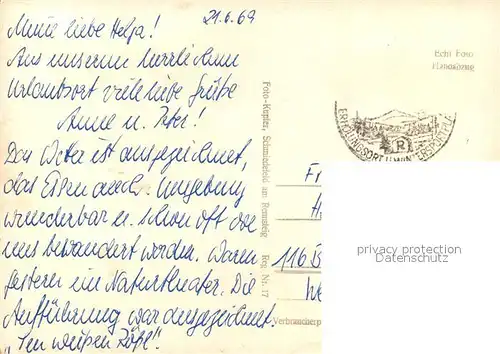 21.6.69
Meine liebe Helga!
Aus unserem herrlichen
Urlaubsort viele liebe Grüße
Anne u. Peter!
Das Wetter ist ausgezeichnet,
das Essen auch. Umgebung
wunderbar u. schon oft von
uns bewandert worden. Waren
gestern im Naturtheater. Die
Aufführung war ausgezeichnet
"Im weißen Rößl".
Echt Foto
Handabzug
Foto-Kepler, Schmiedefeld am Rennsteig
Reg. Nr. 17
Verbraucherp
ERHOLUNGSORT U. WINTERSPORTPL
Fr
H
116 B
We
privacy protection
Datenschutz